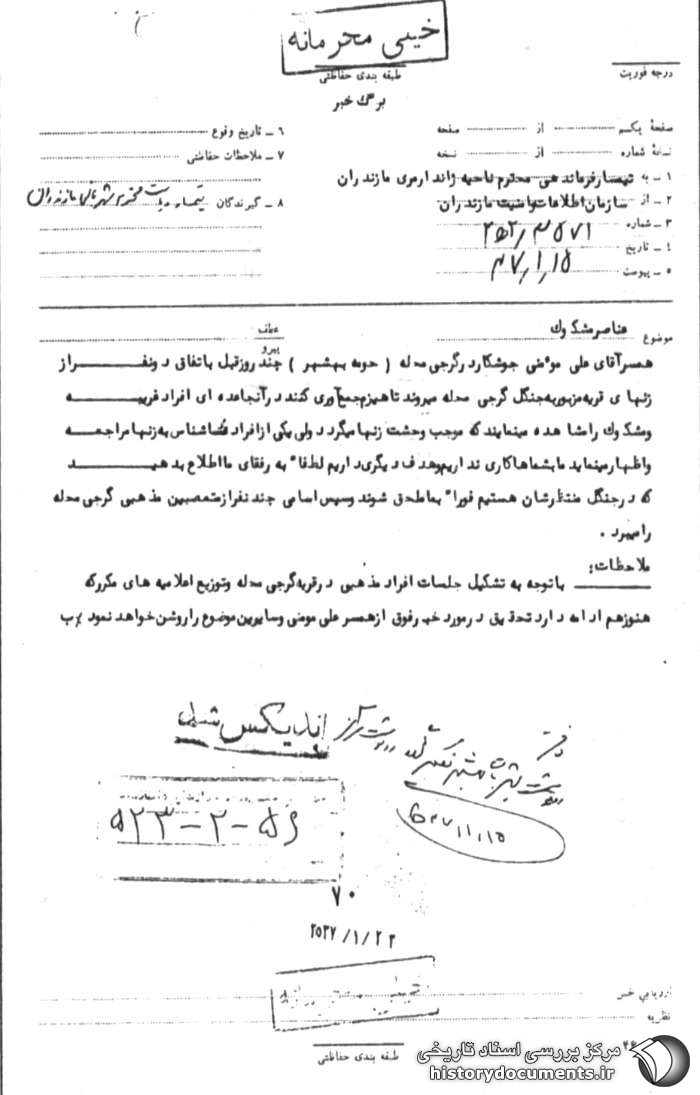 خیلی محرمانه
طبقه بندی حفاظتی
درجه فوریت
برگ خبر
صفحهٔ یکم از صفحه
نسخهٔ شماره از نسخه
۱ ـ به تیمسار فرماندهی محترم ناحیه ژاندارمری مازندران
۲ ـ از سازمان اطلاعات و امنیت مازندران
۳ ـ شماره ۲۵۲/۳۵۷۱
٤ ـ تاریخ ۳۷/۱/۱۵
۵ ـ پیوست
٦ ـ تاریخ وقوع
۷ ـ ملاحظات حفاظتی
۸ ـ گیرندگان تیمسار ریاست محترم شهربانی مازندران
موضوع عناصر مشکوک
عطف
پیرو
همسر آقای علی مومنی جوشکار در گرجی محله ( حومه بهشهر ) چند روز قبل باتفاق دو نفر از
زنهای قریه مزبور به جنگل گرجی محله میروند تا هیزم جمع آوری کنند در آنجا عده ای افراد غریبه
و مشکوک را مشاهده مینمایند که موجب وحشت زنها میگردد ولی یکی از افراد نا شناس به زنها مراجعه
و اظهار مینماید ما بشما ها کاری نداریم و هدف دیگری داریم لطفا" به رفقای ما اطلاع بدهید
که در جنگل منتظرشان هستیم فورا" بما ملحق شوند و سپس اسامی چند نفر از متعصبین مذهبی گرجی محله
را میبرد .
ملاحظات:
با توجه به تشکیل جلسات افراد مذهبی در قریه گرجی محله و توزیع اعلامیه های مکرر که
هنوز هم ادامه دارد تحقیق در مورد خبر فوق از همسر علی مومنی و سایرین موضوع را روشن خواهد نمود
اندیکس شد
۳۷/۱/۱۵
۵۲۳-۲-۵۶
۷۰
۲۵۳۷/۱/۲۲
خیلی محرمانه
ارزیابی خبر
نظریه
طبقه بندی حفاظتی
مرکز بررسی اسناد تاریخی
historydocuments.ir